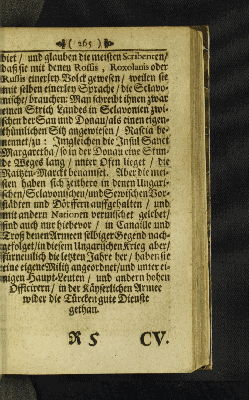 ( 265 )
biet / und glauben die meisten Scribenten /
daß sie mit denen Rossis, Roxolanis oder
Russis einerley Volck gewesen / weilen sie
mit selben einerley Sprache / die Sclavo-
nische / brauchen: Man schreibt ihnen zwar
einen Strich Landes in Sclavonien zwi-
schen der Sau und Donau / als einen eigen-
thümlichen Sitz angewiesen / Rascia be-
nennet / zu: Imgleichen die Insul Sanct
Margaretha / so in der Donau eine Stun-
de Weges lang / unter Ofen lieget / die
Raitzen-Marckt benamset. Aber die mei-
sten haben sich zeithero in denen Ungari-
schen / Sclavonischen / und Serwischen Vor-
städten und Dörffern auffgehalten / und
mit andern Nationen vermischet gelebet /
sind auch nur hiebevor / in Canaille und
Troß denen Armeen selbiger Gegend nach-
gefolget / in diesem Ungarischen Krieg aber /
fürnemlich die letzten Jahre her / haben sie
eine eigene Militz angeordnet / und unter ei-
nigen Haupt-Leuten / und andern hohen
Officirern / in der Käyserlichen Armee
wider die Türcken gute Dienste
gethan.
R 5 CV.